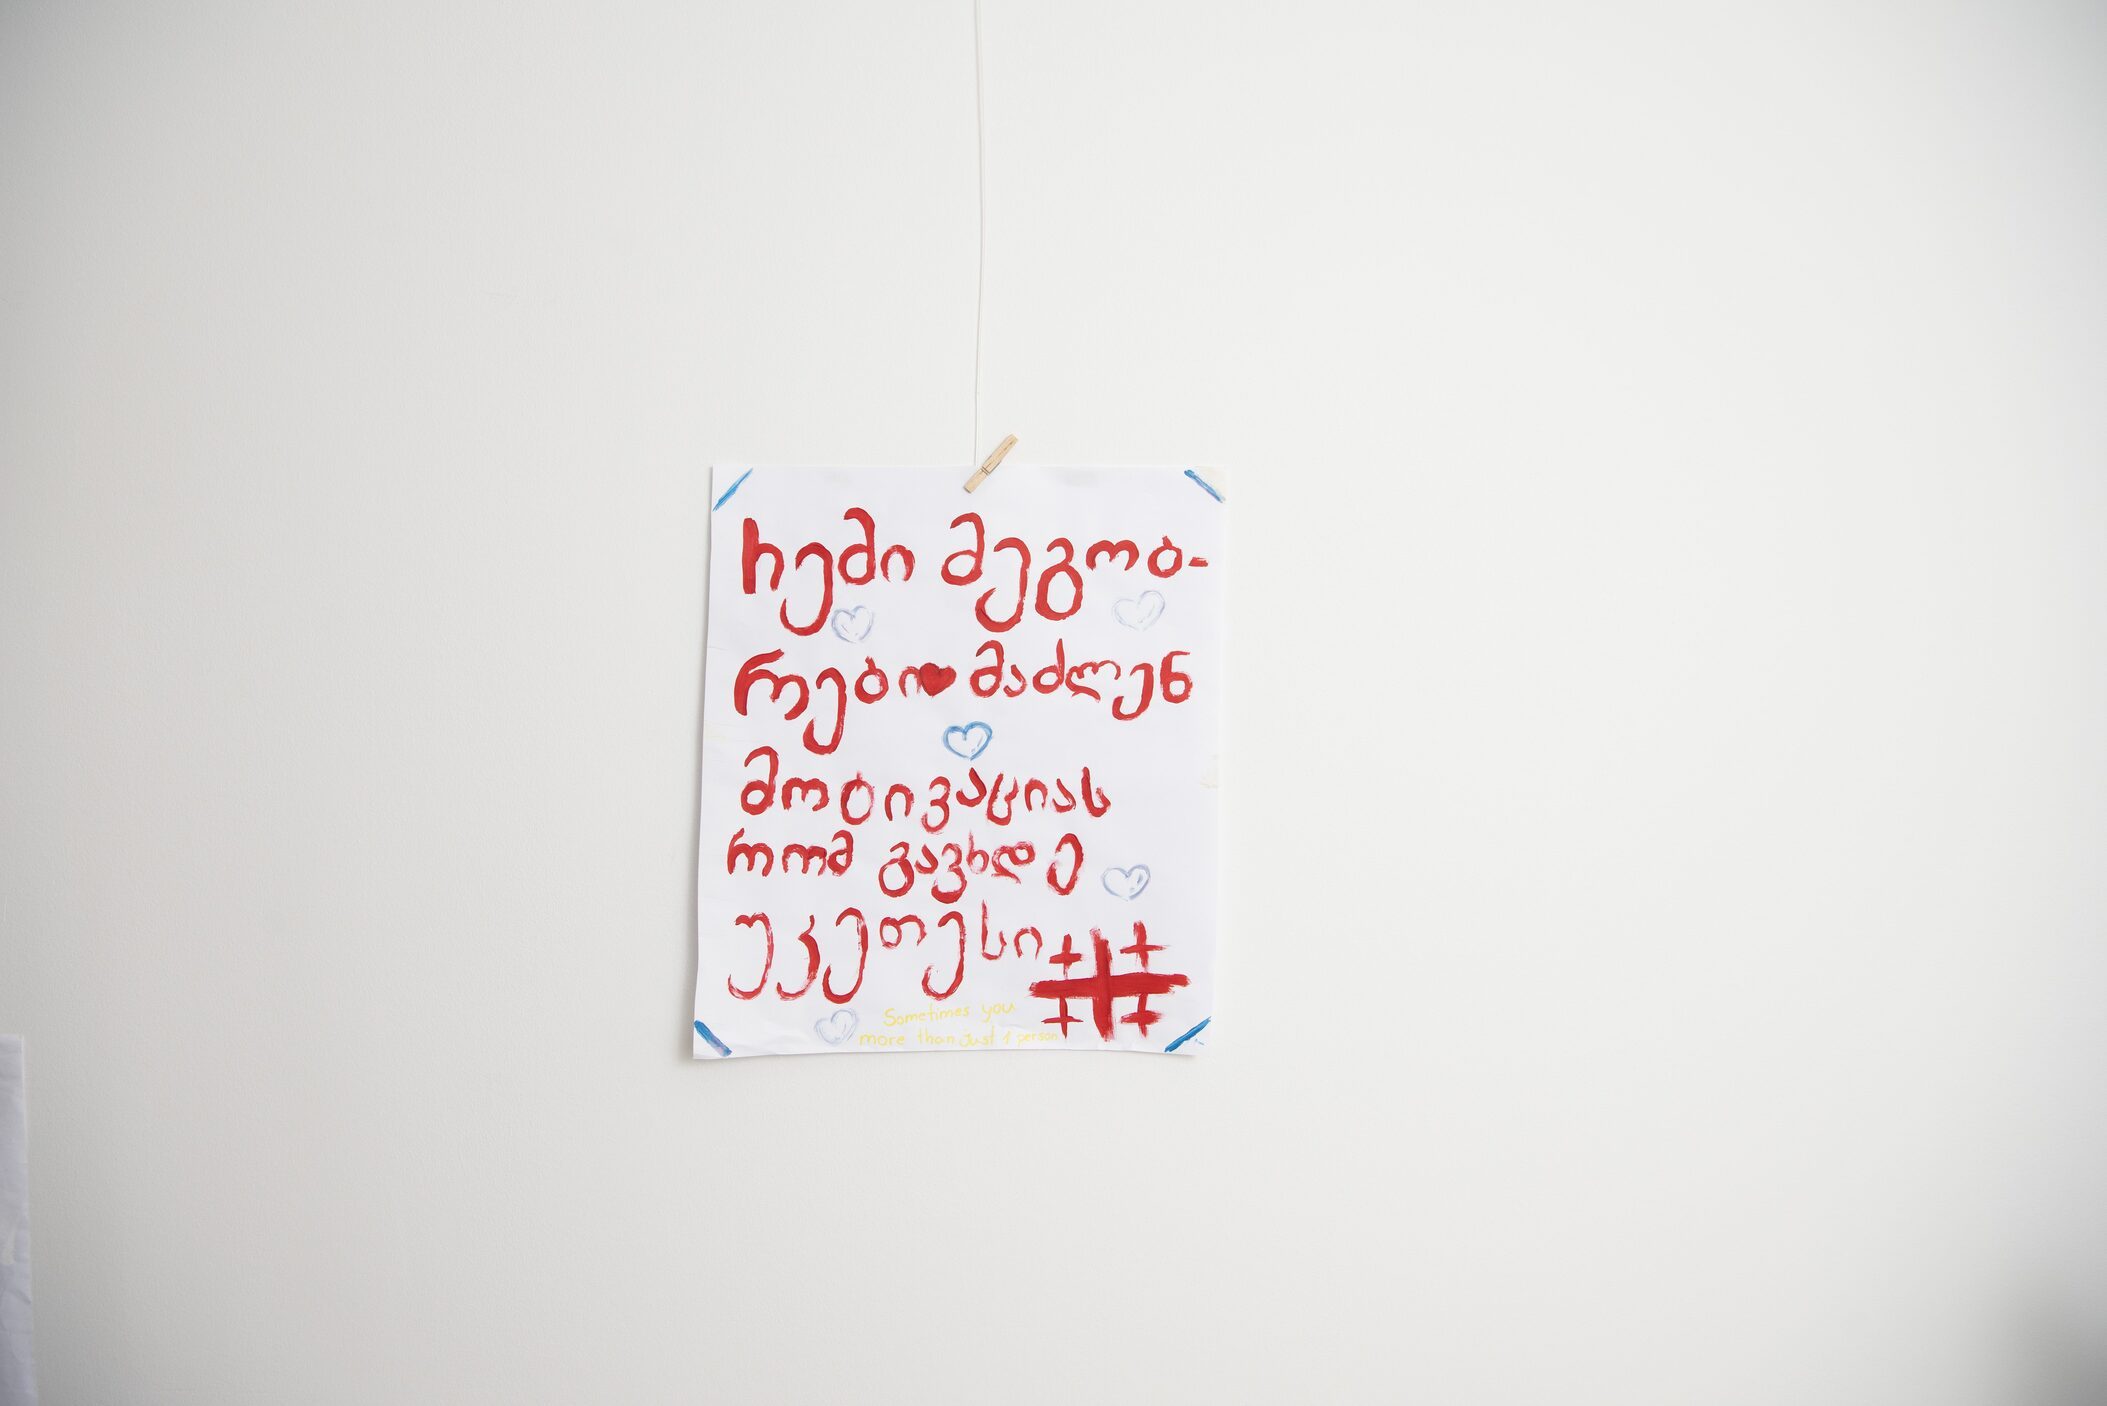 ჩემი მეგობ-
რები მაძლენ
მოტივაციას
რომ გავხდე
უკეთესი
Sometimes you
more than just 1 person